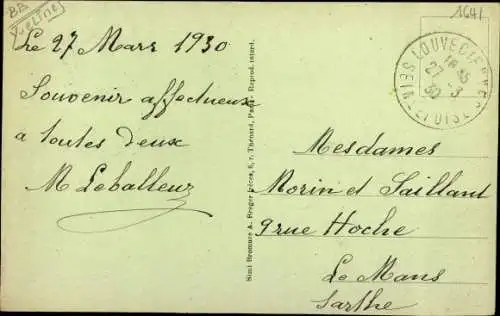 1641
Le 27 Mars 1930
Souvenir affectueux
a toutes deux
M Leballeur
Simi Bromure A. Breger frères, 9, r. Thénard, Paris Reprod. interd.
LOUVECIENNES
SEINE-ET-OISE
18
27 - 3
30
Mesdames
Morin et Saillant
9 rue Hoche
Le Mans
Sarthe